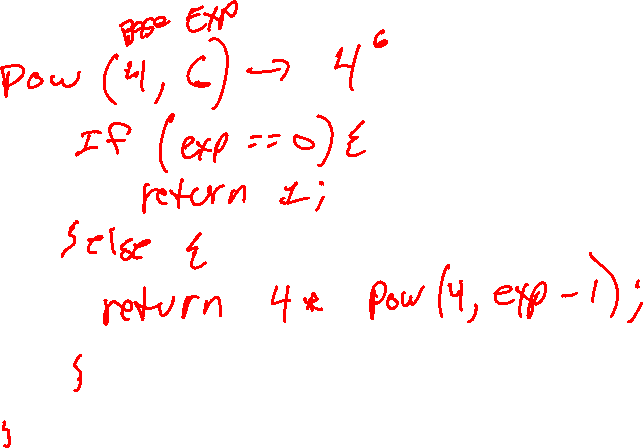 Base EXP
Pow (4, 6) → 4^6
If (exp == 0) {
return 1;
} else {
return 4 * Pow(4, exp - 1);
}
}